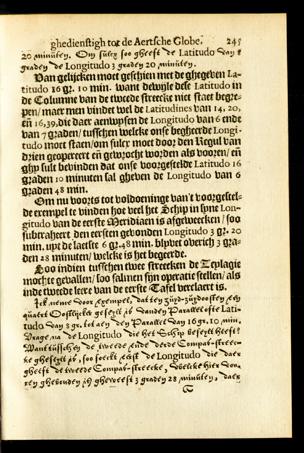 ghedienstigh tot de Aertsche Globe. 245
20 minuten. Om sulcx soo gheeft de Latitudo van 8
graden de Longitudo 3 graden 20 minuten.
Van gelijcken moet geschien met de ghegeven La-
titudo 16 gr. 10 min. want dewijle dese Latitudo in
de Columne van de tweede streecke niet staet begre-
pen/ maer men vindet wel de Latitudines van 14, 20,
en 16, 39, die daer aenwysen de Longitudo van 6 ende
van 7 graden/ tusschen welcke onse begheerde Longi-
tudo moet staen/ om sulcx moet door den Regul van
dzien geopereert en gewrocht worden als vooren/ en
ghy sult bevinden dat onse voorgestelde Latitudo 16
graden 10 minuten sal gheven de Longitudo van 6
graden 48 min.
Om nu voorts tot voldoeninge van't voorgestel-
de exempel te vinden hoe veel het Schip in syne Lon-
gitudo van de eerste Meridiaen is afgeweecken/ soo
substraheert den eersten gevonden Longitudo 3 gr. 20
min. uyt de laetste 6 gr. 48 min. blyvet overich 3 gra-
den 28 minuten/ welcke is het begeerde.
Soo indien tusschen twee streecken de Zeylagie
mochte gevallen/ soo salmen sijn operatie stellen/ als
inde tweede leere van de eerste Tafel verclaert is.
Ick neme voor exempel, dat ten zuyd-zuydoosten een
quaert Oostlijcker gezeylt is van den Parallel ofte Lati-
tudo van 8 gr. tot aen den Parallel van 16 gr. 10 min.
Vrage na de Longitudo die het Schip bezeylt heeft?
Want tusschen de tweede ende derde Compas-streec-
ke ghezeylt is, soo soeckt eerst de Longitudo die daer
gheeft de tweede Compas-streecke, welcke hier vo-
ren ghevonden is gheweest 3 graden 28 minuten, daer